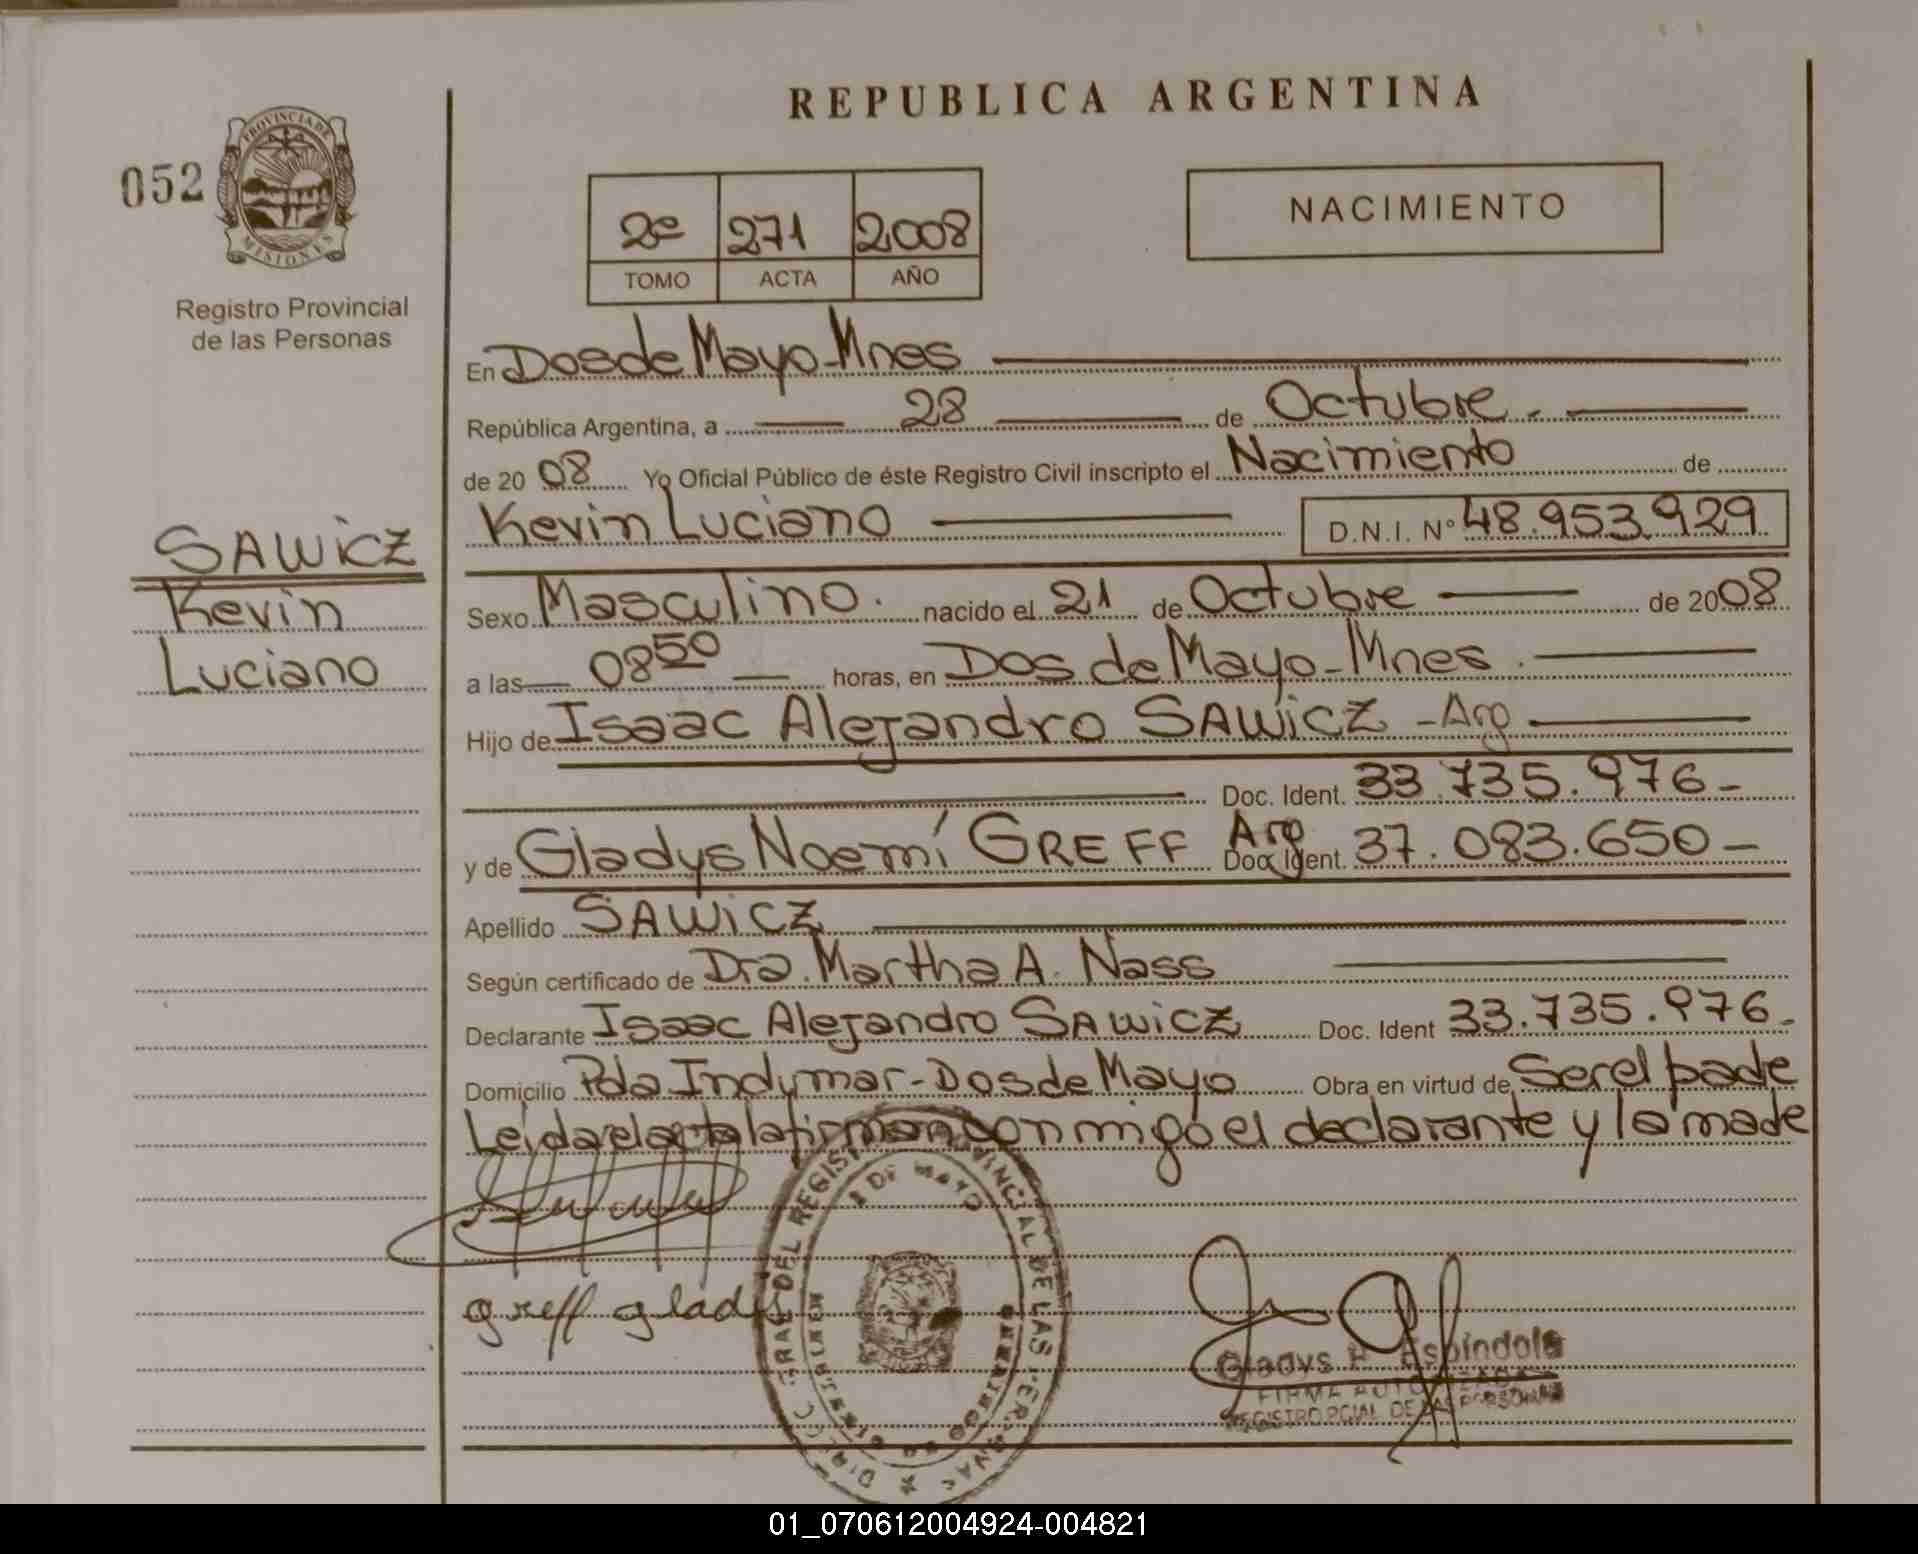 REPUBLICA ARGENTINA
052
PROVINCIA DE
MISIONES
Registro Provincial
de las Personas
2º 271 2008
TOMO ACTA AÑO
NACIMIENTO
En Dos de Mayo - Mnes
República Argentina, a 28 de Octubre.
de 20 08 Yo Oficial Público de éste Registro Civil inscripto el Nacimiento de
Kevin Luciano D.N.I. Nº 48.953.929
SAWICZ
Kevin
Luciano
Sexo Masculino. nacido el 21 de Octubre de 2008
a las 08 50 horas, en Dos de Mayo - Mnes.
Hijo de Isaac Alejandro SAWICZ - Arg
Doc. Ident. 33.735.976-
y de Gladys Noemí GREFF Arg Doc. Ident. 37.083.650-
Apellido SAWICZ
Según certificado de Dra. Martha A. Nass
Declarante Isaac Alejandro SAWICZ Doc. Ident 33.735.976-
Domicilio Pda Indymar - Dos de Mayo Obra en virtud de Ser el padre
Leida el acta la firman con migo el declarante y la madre
greff gladys
2 DE MAYO
Gladys Espindola
FIRMA AUTORIZADA
REGISTRO PCIAL DE LAS PERSONAS
01_070612004924-004821